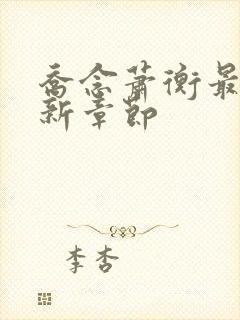 乔念萧衡最
新章节
李杏